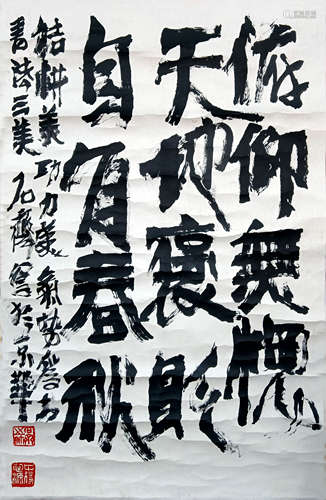 俯仰無愧
天地褒貶
自有春秋
結構美功力美氣勢
書法三美 石齊寫於京華